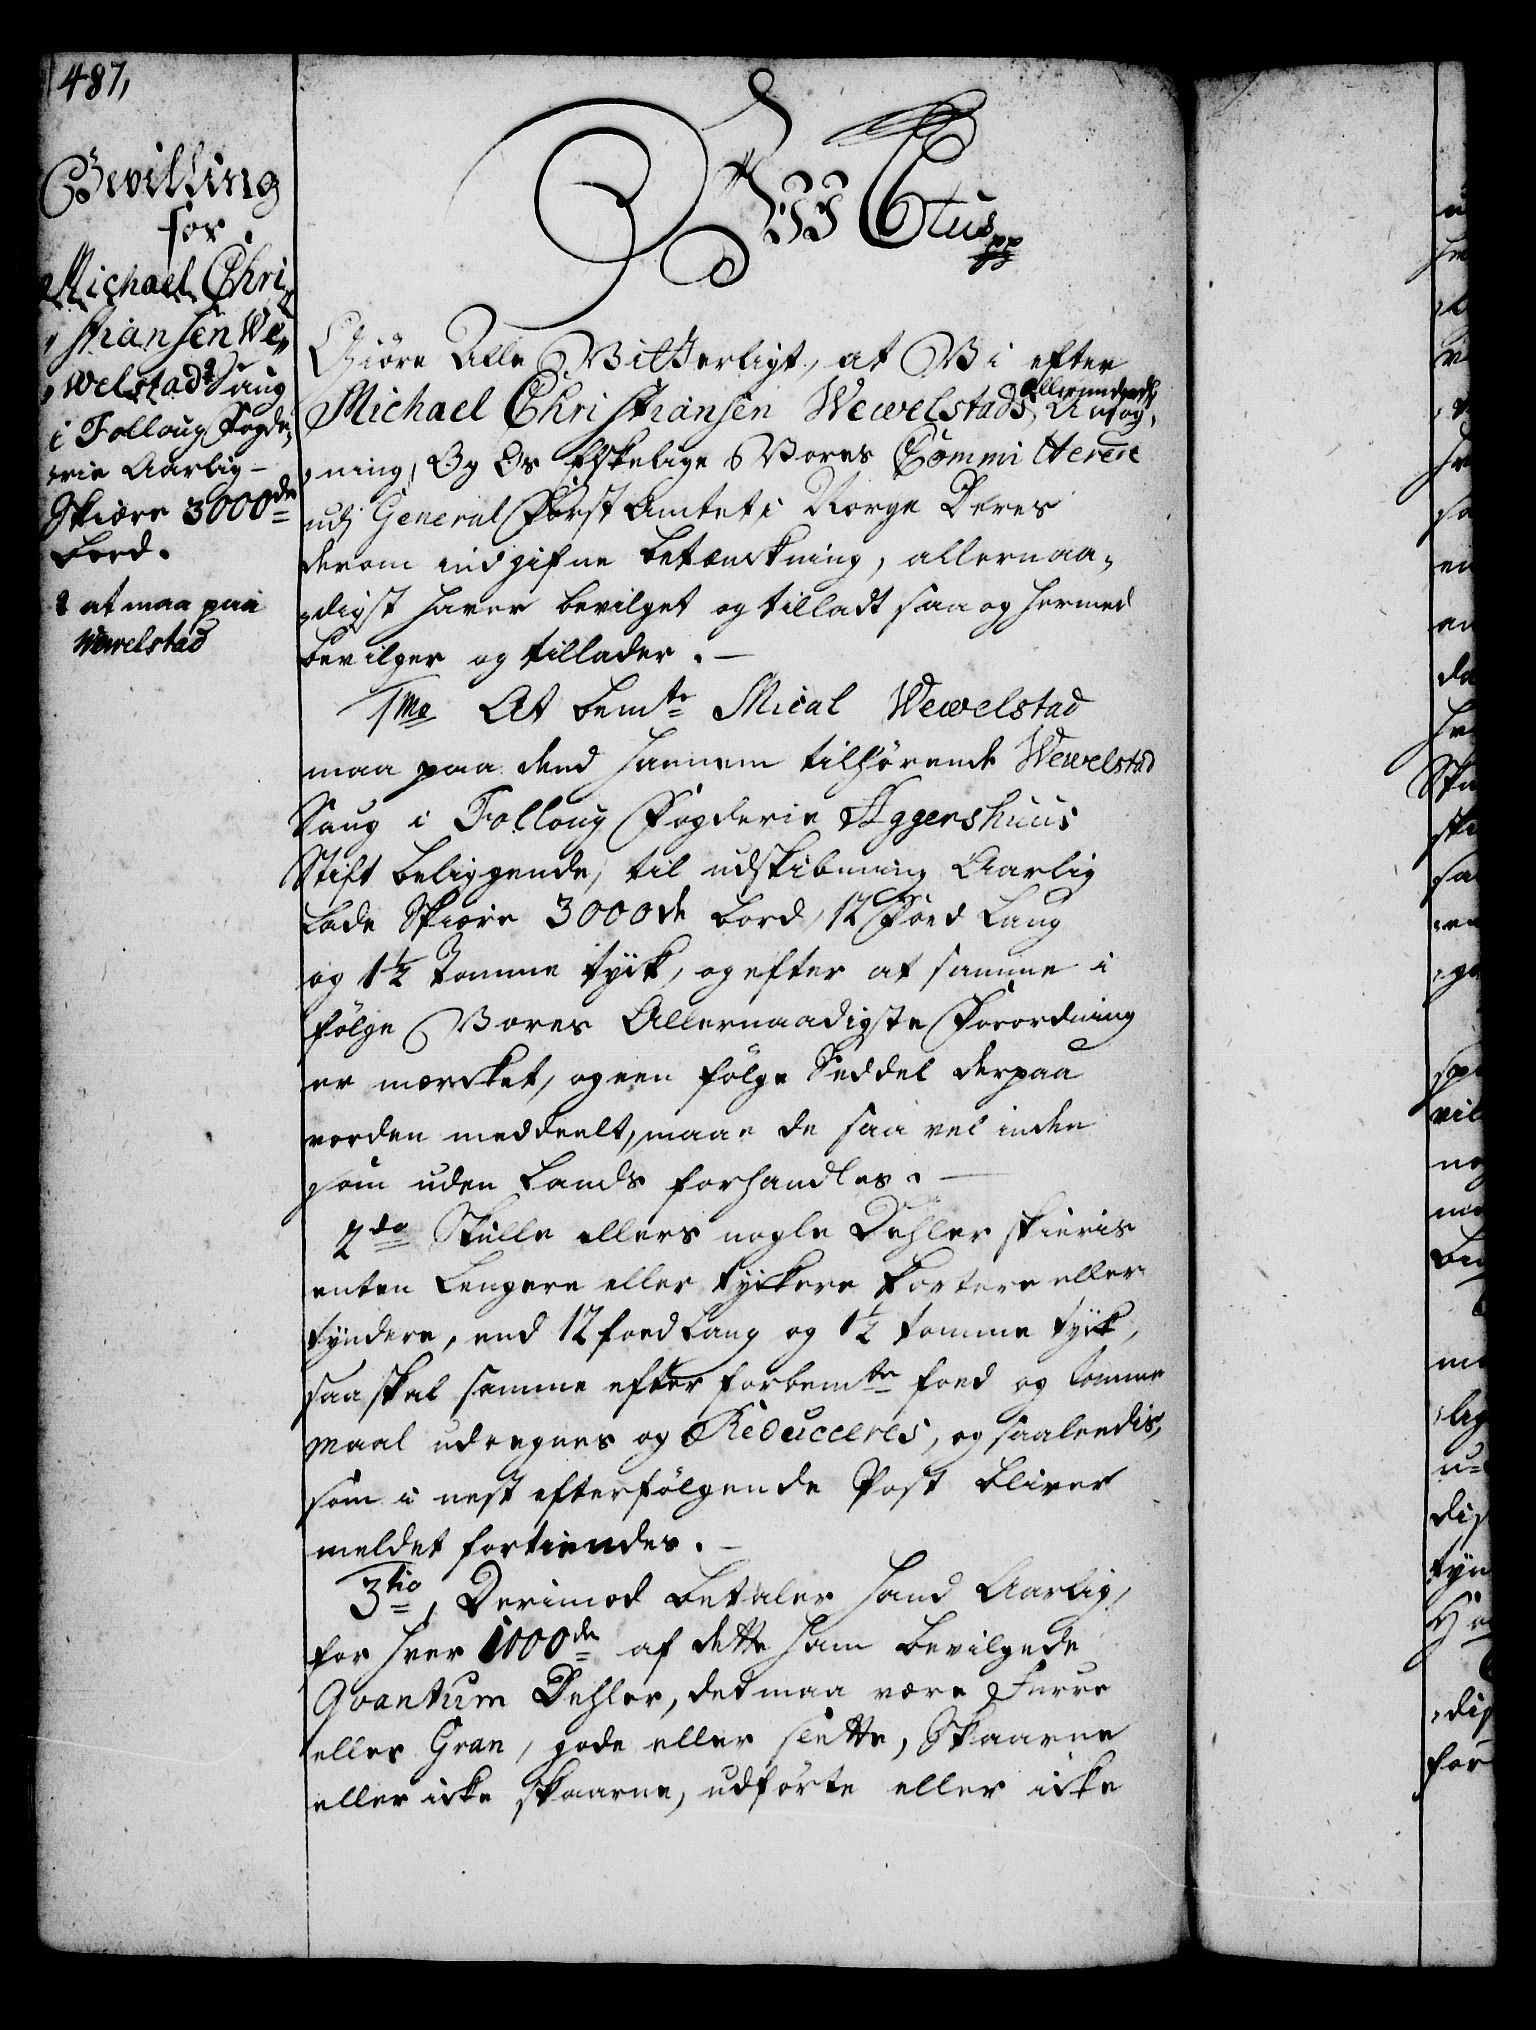 487,
Bevilling
for
Michael Chri
stiansen We„
„welstad Saug
i Folloug Fogde„
„rie Aarlig
Skiære 3000de
bord.
at maa paa
Wewelstad
Wj Ctus pp
Giöre Alle Vitterligt, at Vi efter
Michael Christiansen Wewelstads, allerunderd: Ansög„
„ning, Og Os Elskelige Vores Committerede
udj General Forst Amtet i Norge Deres
derom indgifne betænckning, allernaa„
„digst haver bevilget og tilladt saa og hermed
bevilger og tillader.
1mo At bemte Mical Wewelstad
maa paa dend hannem tilhörende Wewelstad
Saug i Folloug Fogderie Aggershuus
Stift beliggende, til udskibning Aarlig
lade Skiære 3000de bord, 12 Foed Lang
og 1½ Tomme tyck, og efter at samme i
fölge Vores Allernaadigste Forordning
er mercket, og een fölge Seddel derpaa
vorden meddeelt, maae de saa vel inden
som uden Lands forhandles.
2do Skulle ellers nogle Dehler skieris
enten Lengere eller tyckere kortere eller
tyndere, end 12 foed Lang og 1½ tomme tyck,
saa skal samme efter forbemte foed og tomme
maal udregnes og Reduceres, og saaleedis,
som i nest efterfölgende Post bliver
meldet fortiendes.
3tio, Derimod betaler hand Aarlig,
for hver 1000de af dette ham bevilgede
Qvantum Dehler, det maa være Furre
eller Gran, gode eller slette, Skaarne
eller icke skaarne, udförte eller icke